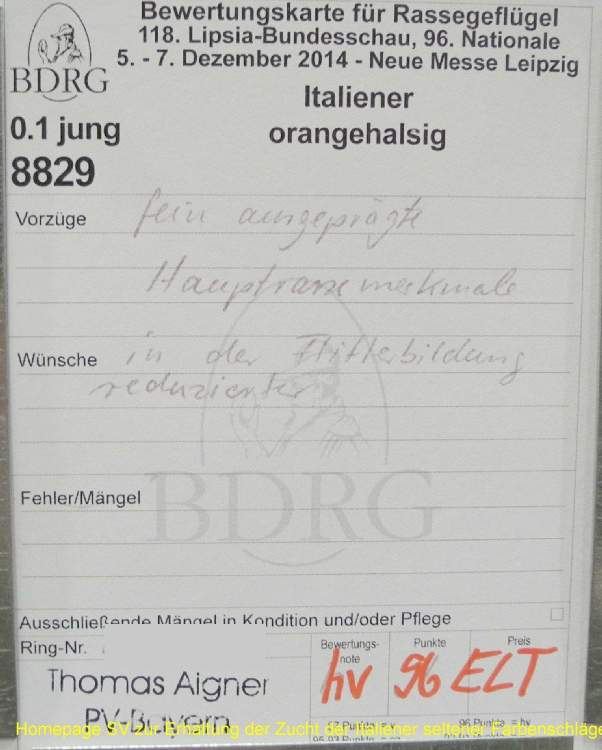 Bewertungskarte für Rassegeflügel
118. Lipsia-Bundesschau, 96. Nationale
5. - 7. Dezember 2014 - Neue Messe Leipzig
BDRG
Italiener
0.1 jung
orangehalsig
8829
Vorzüge fein ausgeprägte
Hauptrassemerkmale
Wünsche in der Flitterbildung
reduzierter
BDRG
Fehler/Mängel
Ausschließende Mängel in Kondition und/oder Pflege
Ring-Nr.
Bewertungs-
note
Punkte
Preis
hv 96 ELT
Thomas Aigner
PV Bayern
97 Punkte = v
96 Punkte = hv
Homepage SV zur Erhaltung der Zucht der Italiener seltener Farbenschläge